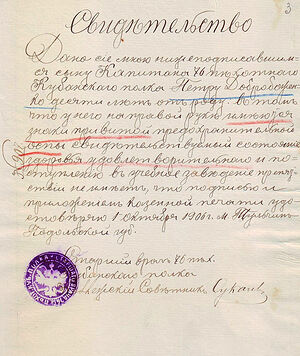 3
Свидѣтельство
Дано сіе мною нижеподписавшим-
ся сыну Капитана 76 пѣхотнаго
Кубанскаго полка Петру Доброволь
ко десяти лѣтъ отъ роду, въ томъ
что у него на правой рукѣ имеются
знаки привитой предохранительной
оспы свидѣтельствуемый состояніе
здоровья удовлетворительно и по-
ступленію въ учебное заведеніе препят-
ствій не имѣетъ, что подписью и
приложеніемъ казенной печати удо-
стовѣряю 1 октября 1906 г. м. Тульчинъ
Подольской губ.
Старшій врачъ 76 пѣх.
Кубанскаго полка
Совѣтникъ